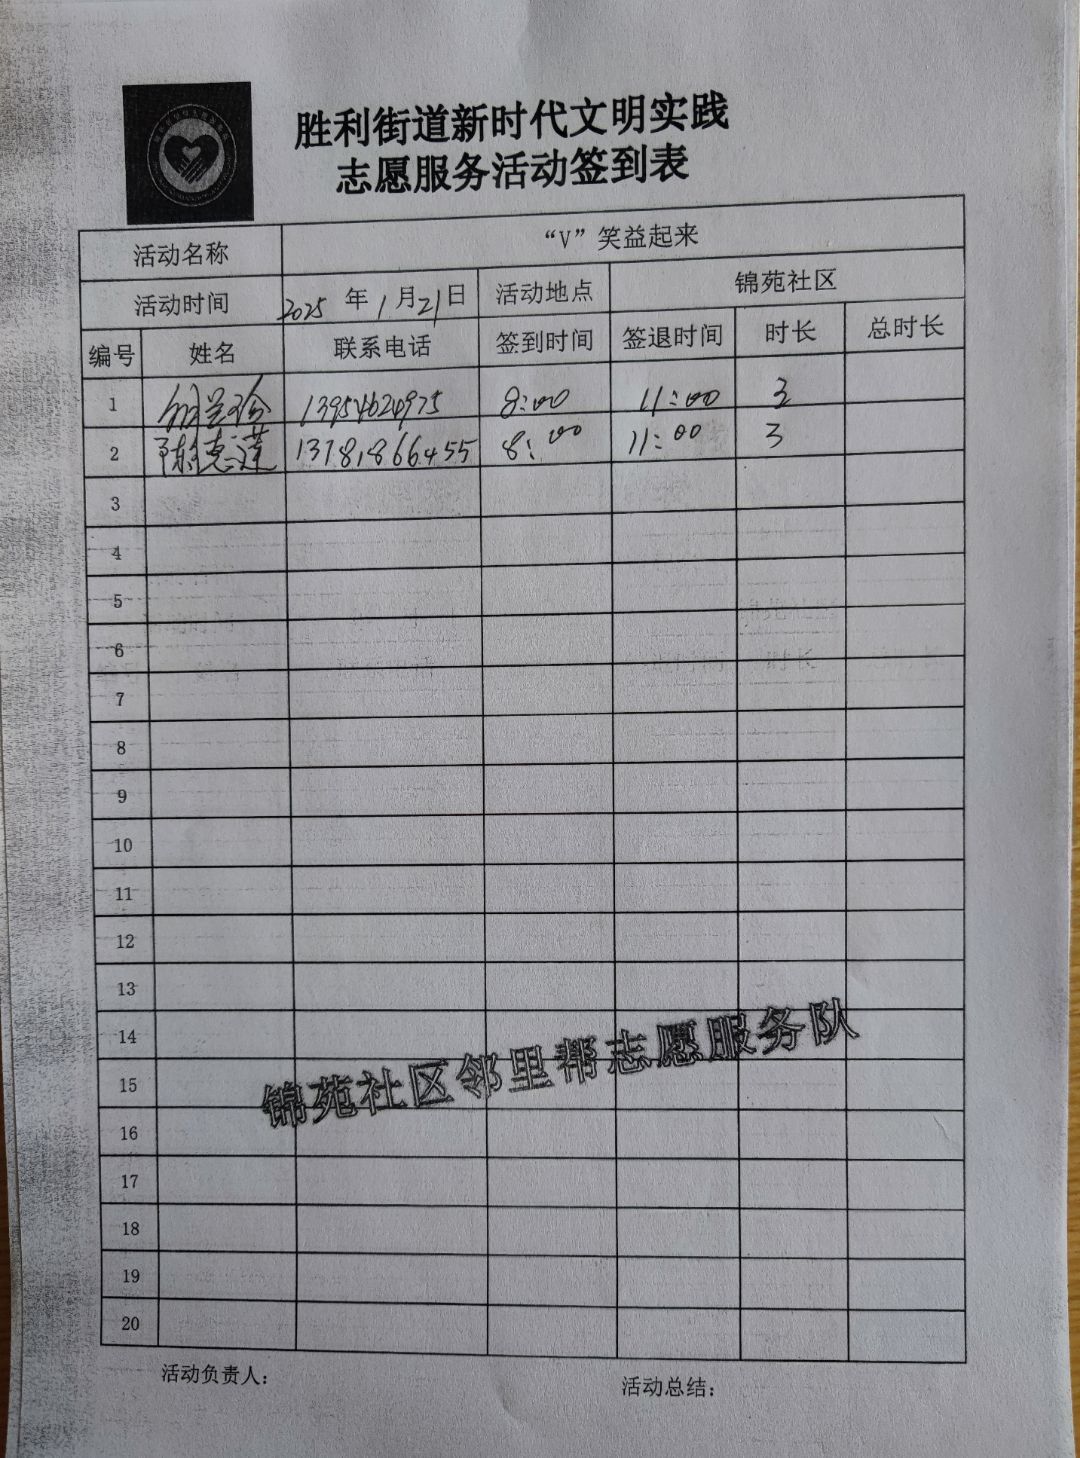 胜利街道新时代文明实践
志愿服务活动签到表
活动名称 “V”笑益起来
活动时间 2025 年 1 月 21 日 活动地点 锦苑社区
编号 姓名 联系电话 签到时间 签退时间 时长 总时长
1 13954624975 8:00 11:00 3
2 陈惠莲 8:00 11:00 3
3
4
5
6
7
8
9
10
11
12
13
14
15
16
17
18
19
20
锦苑社区邻里帮志愿服务队
活动负责人: 活动总结: